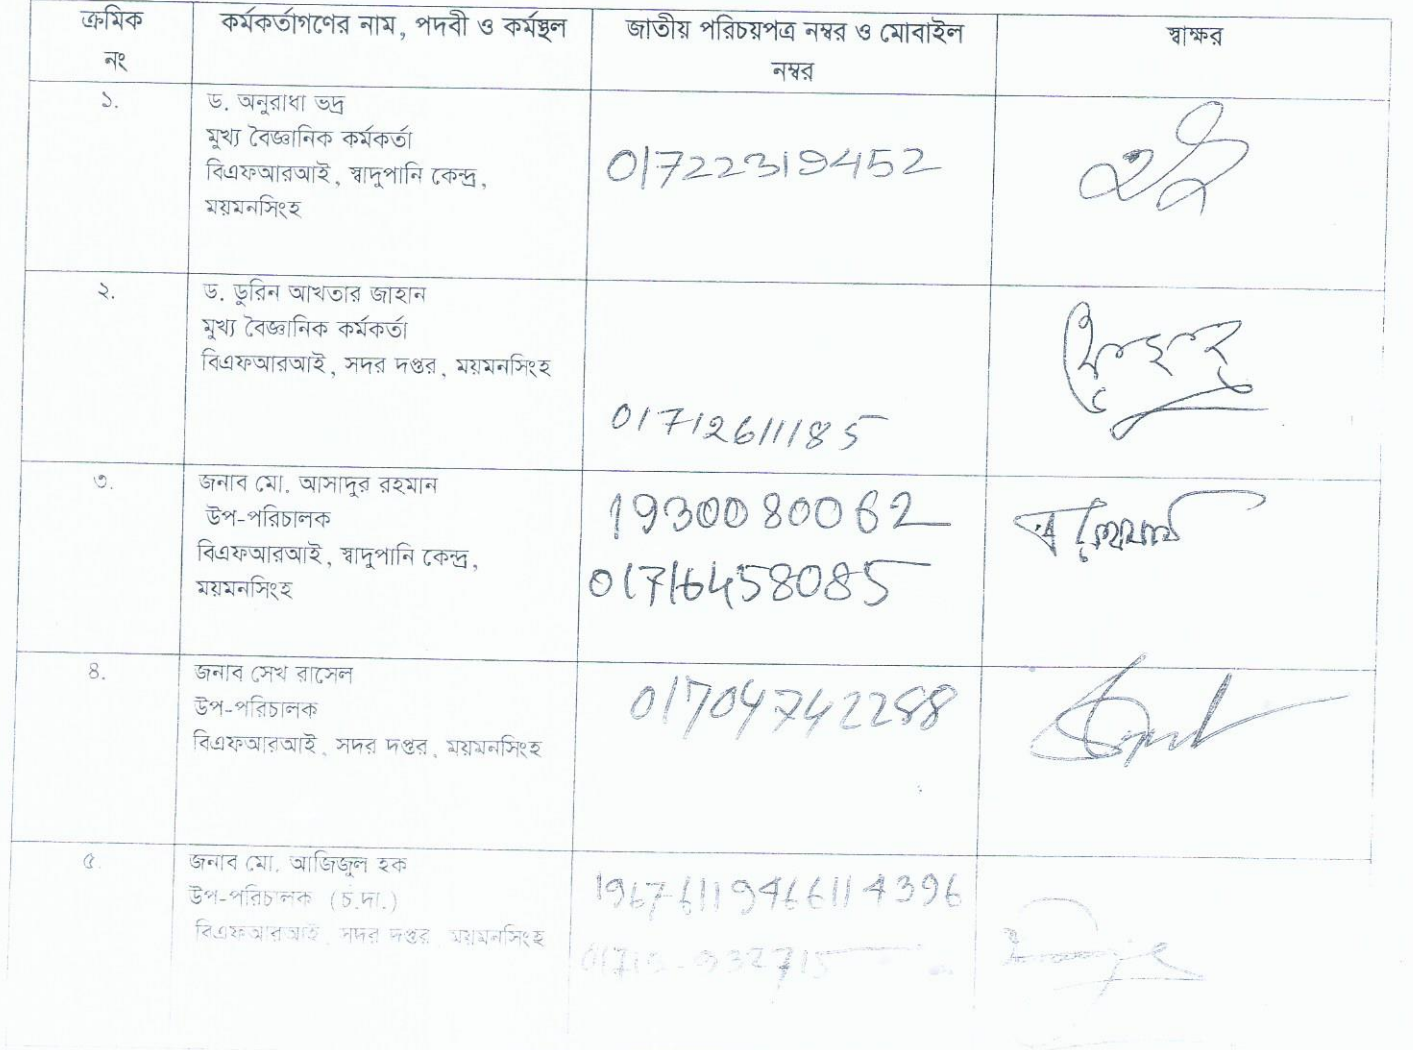 ক্রমিক নং
কর্মকর্তাগণের নাম, পদবী ও কর্মস্থল
জাতীয় পরিচয়পত্র নম্বর ও মোবাইল নম্বর
স্বাক্ষর
১.
ড. অনুরাধা ভদ্র
মুখ্য বৈজ্ঞানিক কর্মকর্তা
বিএফআরআই, স্বাদুপানি কেন্দ্র,
ময়মনসিংহ
01722319452
২.
ড. ডুরিন আখতার জাহান
মুখ্য বৈজ্ঞানিক কর্মকর্তা
বিএফআরআই, সদর দপ্তর, ময়মনসিংহ
01712611185
৩.
জনাব মো. আসাদুর রহমান
উপ-পরিচালক
বিএফআরআই, স্বাদুপানি কেন্দ্র,
ময়মনসিংহ
1930080062
01716458085
৪.
জনাব সেখ রাসেল
উপ-পরিচালক
বিএফআরআই, সদর দপ্তর, ময়মনসিংহ
01704742288
৫.
জনাব মো. আজিজুল হক
উপ-পরিচালক (চ.দা.)
বিএফআরআই, সদর দপ্তর, ময়মনসিংহ
19676119466114396